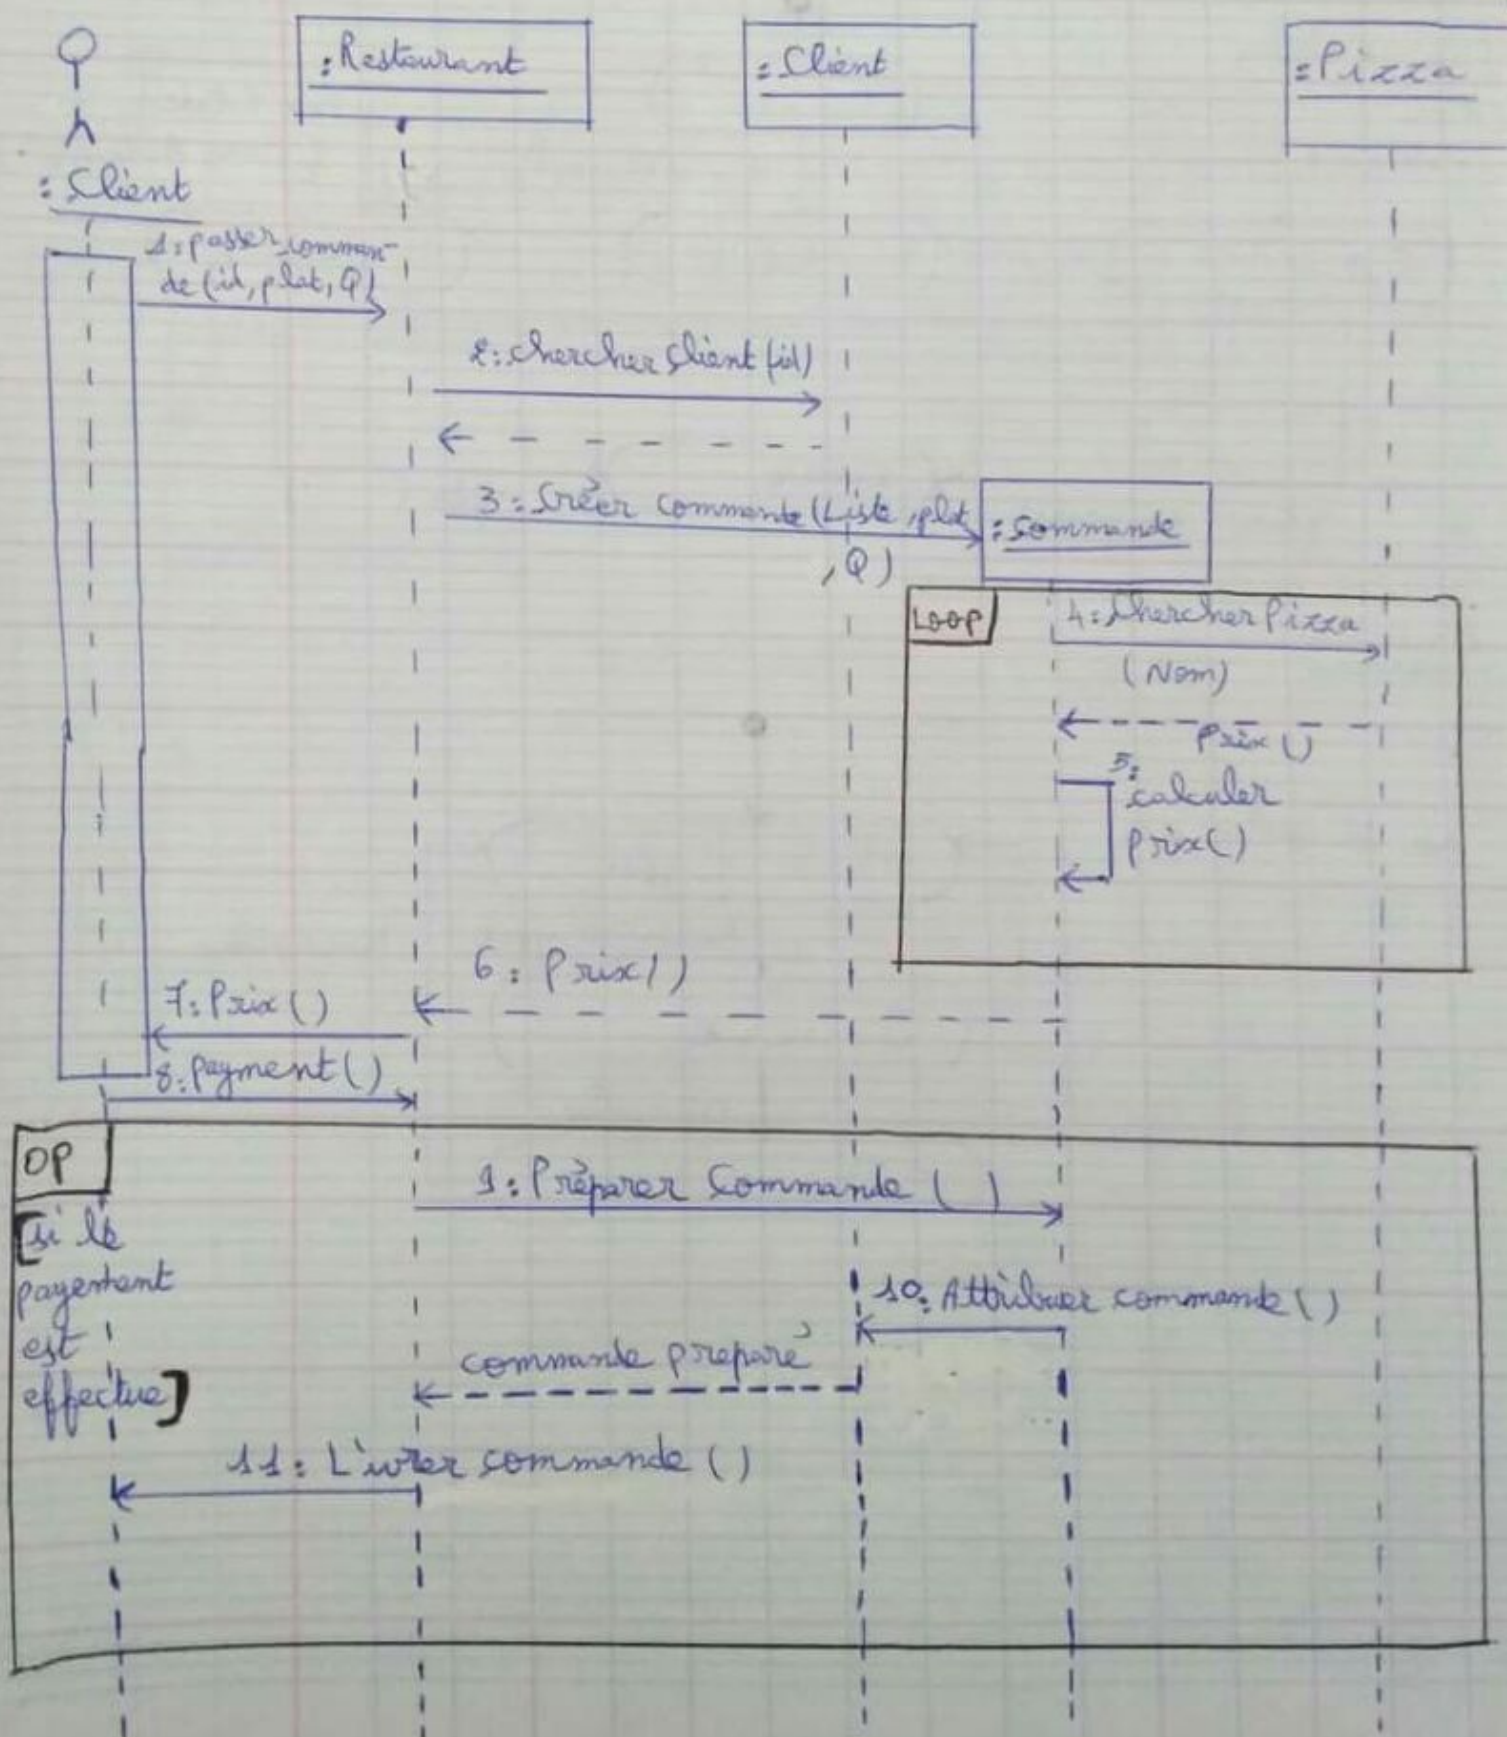 :Restaurant
:Client
:Pizza
:Client
1:passer comman-
de(id, plat, Q)
2:chercher Client(id)
3:Créer commande(Liste, plat
, Q)
:commande
LOOP
4:chercher Pizza
(Nom)
Prix()
5:
calculer
prix()
6: Prix()
7:Prix()
8:payment()
OP
[si le
payement
est
effectue]
9: Préparer Commande ( )
10: Attribuer commande()
commande préparé
11: Livrer commande ()